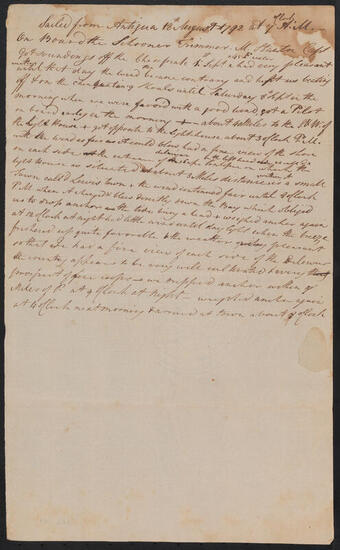 Sailed from Antigua 18th August 1792 at 7 oClock A.M.
On Board the Schooner Trimmer M. Capt
got soundings off the Chesapeake 5 Sept & had very pleasant
until that day the wind became contrary and kept us beating
off & on the Shoals until Saturday 8 Sept in the
morning when we were favored with a good wind, got a Pilot
on board early in the morning about to the N.W. of
the Light House & got opposite to the Light house about 3 oClock P.M.
with the wind as fair as it could blow had a fine view of the shore
on each side of the entrance of on which the
light House is situated about 3 Miles distance is a small
Town call'd Lewis town & the wind continued fair until 8 oClock
P.M. when blew directly down the Bay which obliged
us to drop anchor & weighed anchor again
at 12 oClock at night had little wind until day light when the breeze
freshened up quite favorable & the weather pleasant
so that we had a fine view of each side of the Delaware
the country appears to be very well cultivated & every
prospect of fine crops as we dropped anchor within 9
Miles of P. at 9 oClock at Night - weighed anchor again
at 4 oClock next morning & arrived at town about 7 oClock